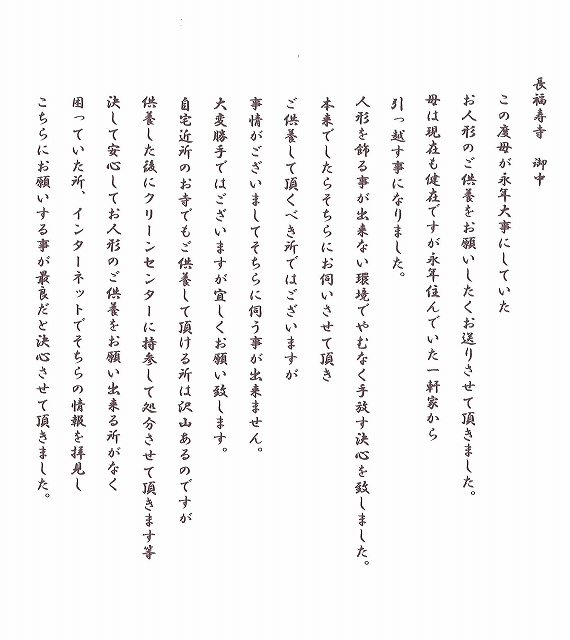 長福寿寺　御中
この度母が永年大事にしていた
お人形のご供養をお願いしたくお送りさせて頂きました。
母は現在も健在ですが永年住んでいた一軒家から
引っ越す事になりました。
人形を飾る事が出来ない環境でやむなく手放す決心を致しました。
本来でしたらそちらにお伺いさせて頂き
ご供養して頂くべき所ではございますが
事情がございましてそちらに伺う事が出来ません。
大変勝手ではございますが宜しくお願い致します。
自宅近所のお寺でもご供養して頂ける所は沢山あるのですが
供養した後にクリーンセンターに持参して処分させて頂きます等
決して安心してお人形のご供養をお願い出来る所がなく
困っていた所、インターネットでそちらの情報を拝見し
こちらにお願いする事が最良だと決心させて頂きました。